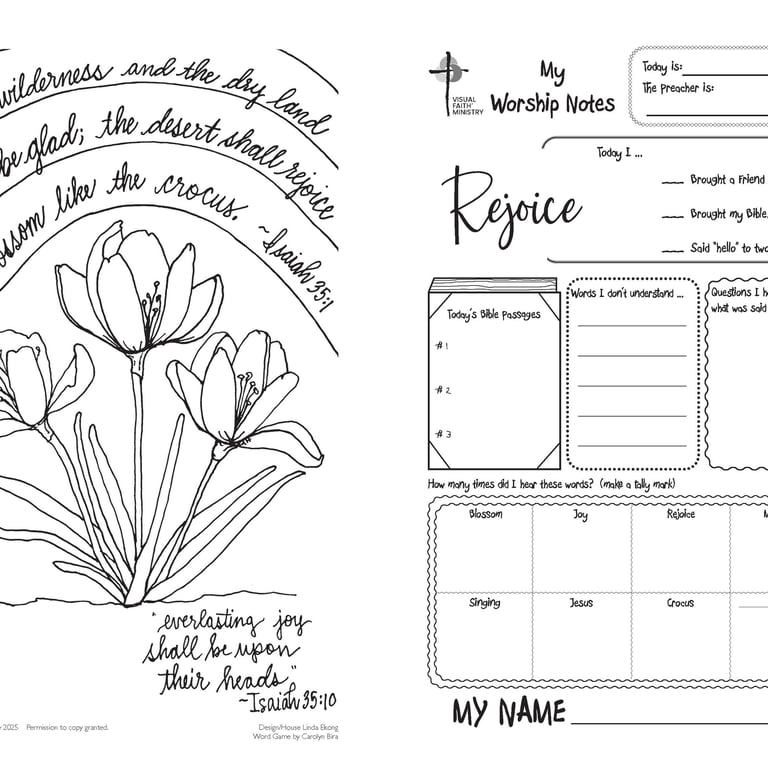 wilderness and the dry land
be glad; the desert shall rejoice
blossom like the crocus. ~Isaiah 35:1
"everlasting joy
shall be upon
their heads"
~Isaiah 35:10
2025 Permission to copy granted.
Design/House Linda Ekong
Word Game by Carolyn Bira
VISUAL
FAITH
MINISTRY
My
Worship Notes
Today is:
The Preacher is:
Rejoice
Today I ...
Brought a Friend
Brought my Bible
Said "hello" to two
Today's Bible Passages
#1
#2
#3
Words I don't understand ...
Questions I h
what was said
How many times did I hear these words? (make a tally mark)
Blossom Joy Rejoice
Singing Jesus Crocus
MY NAME